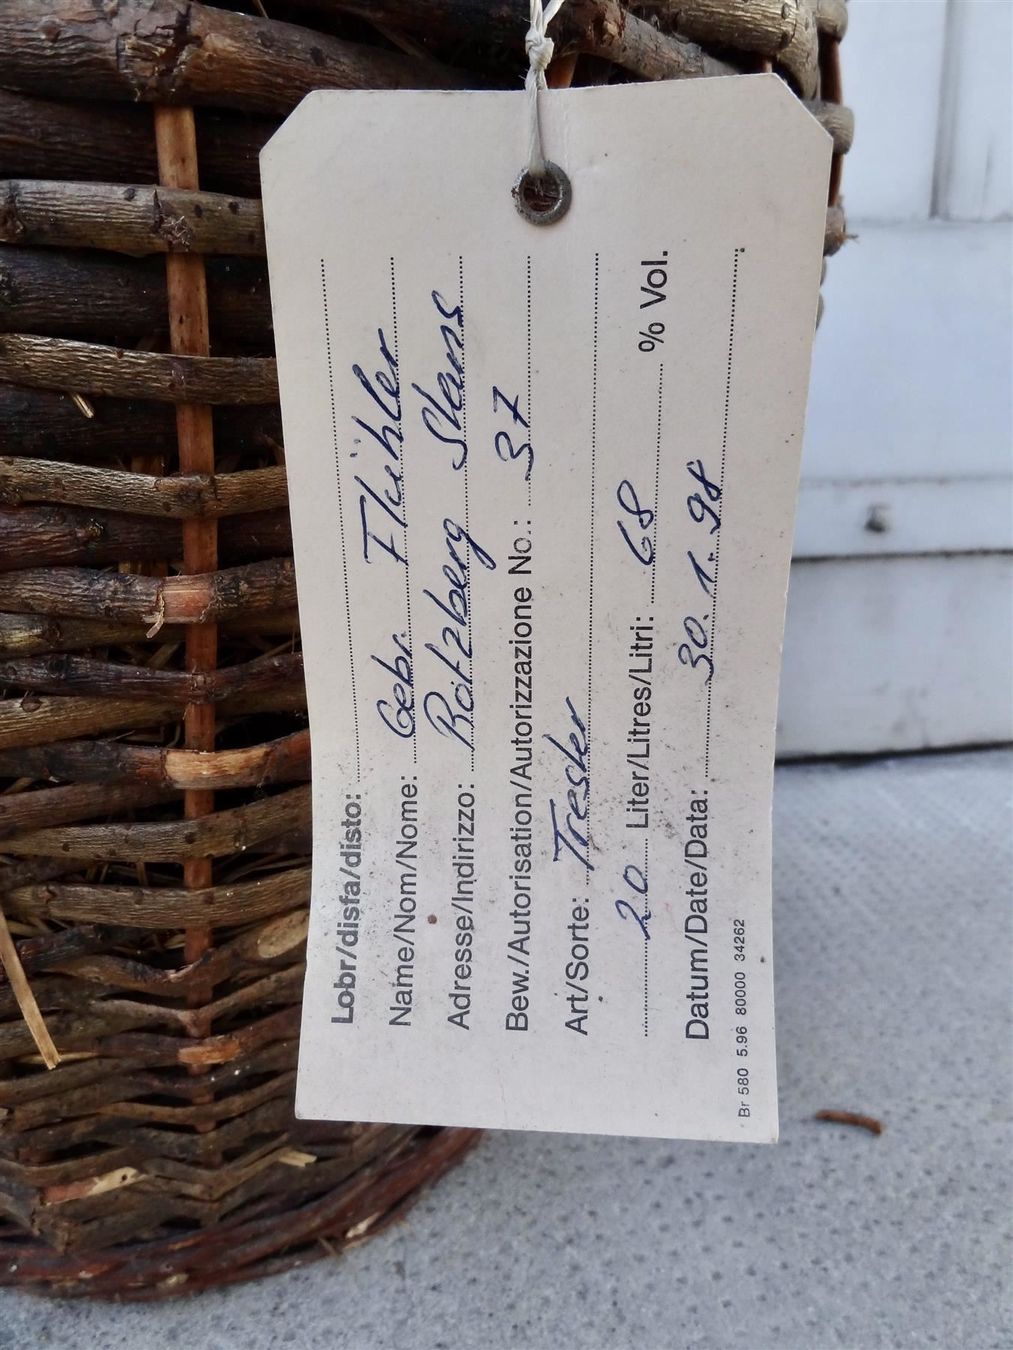 Lobr/disfa/disto:
Name/Nom/Nome: Gebr. Flühler
Adresse/Indirizzo: Rotzberg Stans
Bew./Autorisation/Autorizzazione No.: 37
Art/Sorte: Trester
20 Liter/Litres/Litri: 68 % Vol.
Datum/Date/Data: 30.1.98
Br 580 5.96 80000 34262